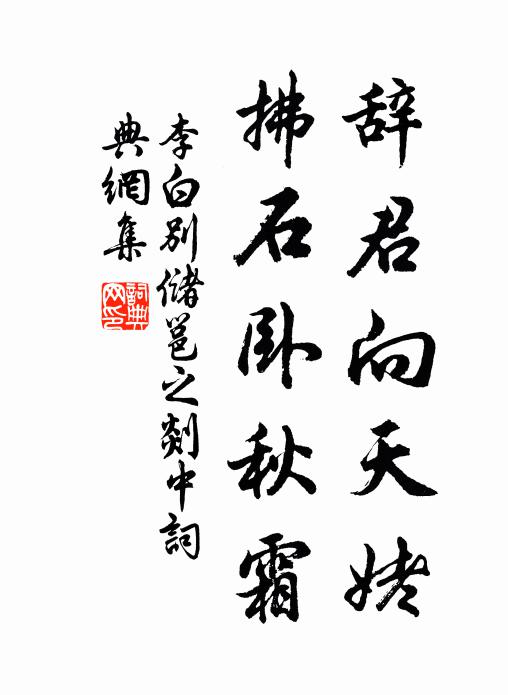 辞君向天姥
拂石卧秋霜
李白别儲邕之剡中詞
典網集
詞典网印